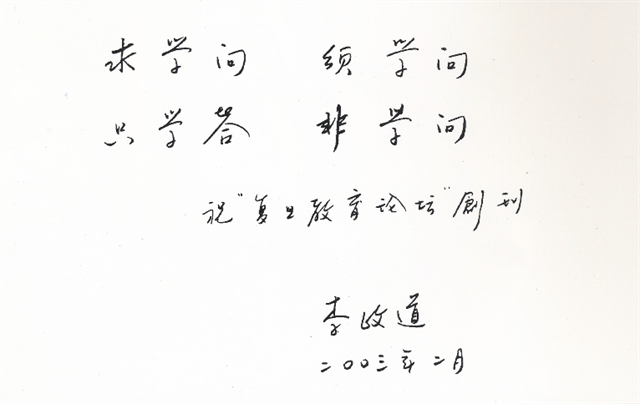 求学问 须学问
只学答 非学问
祝"复旦教育论坛"創刊
李政道
二００三年二月